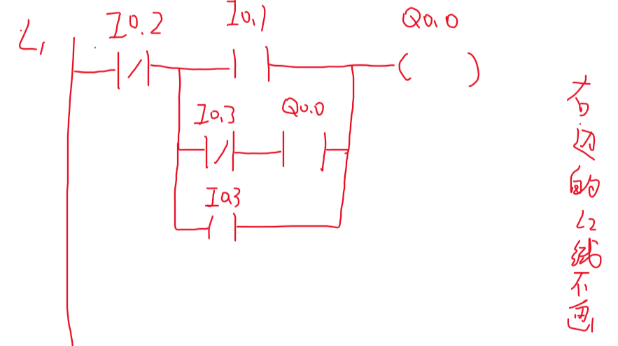 L₁
I0.2
I0.1
Q0.0
I0.3
Q0.0
I03
右边的L₂线不画